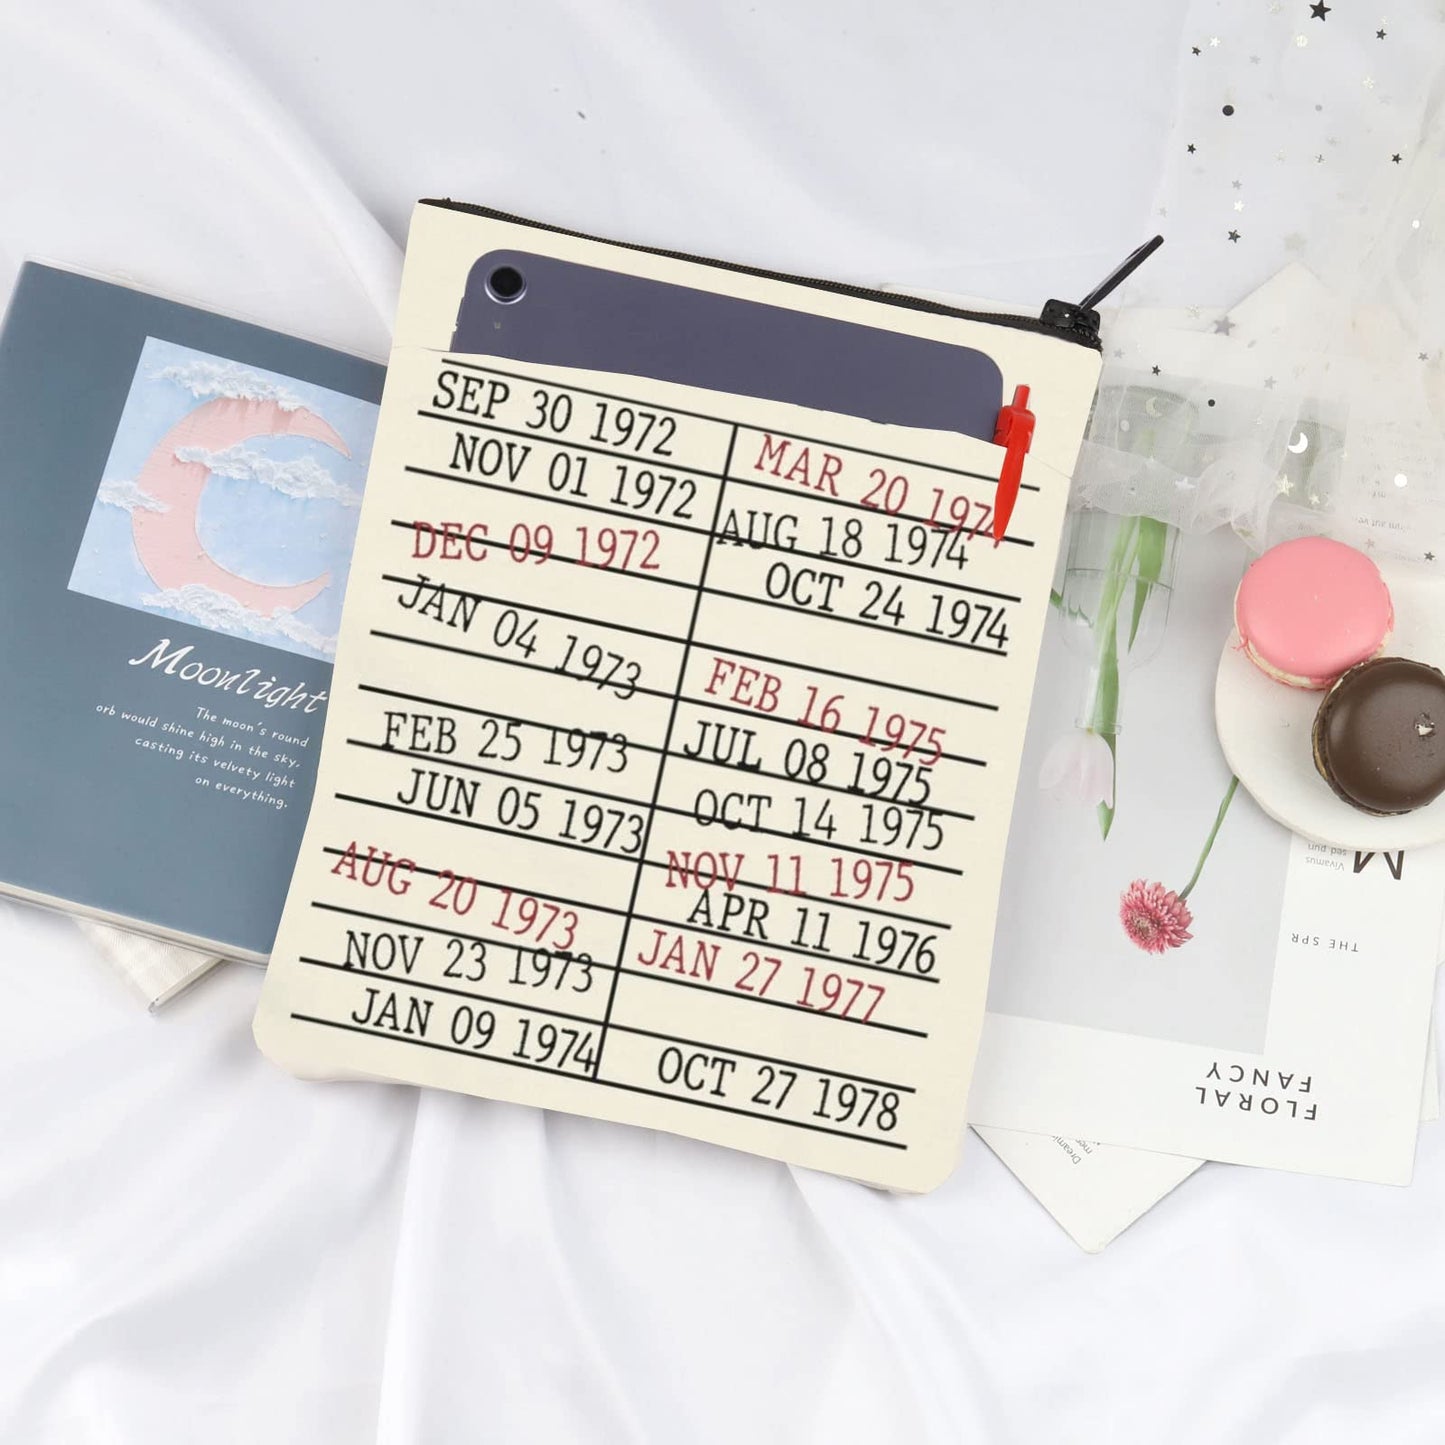 SEP 30 1972
NOV 01 1972
DEC 09 1972
JAN 04 1973
FEB 25 1973
JUN 05 1973
AUG 20 1973
NOV 23 1973
JAN 09 1974
MAR 20 1974
AUG 18 1974
OCT 24 1974
FEB 16 1975
JUL 08 1975
OCT 14 1975
NOV 11 1975
APR 11 1976
JAN 27 1977
OCT 27 1978
Moonlight
The moon's round
orb would shine high in the sky,
casting its velvety light
on everything.
M
Vivamus
sed pun
THE SPR
FLORAL
FANCY